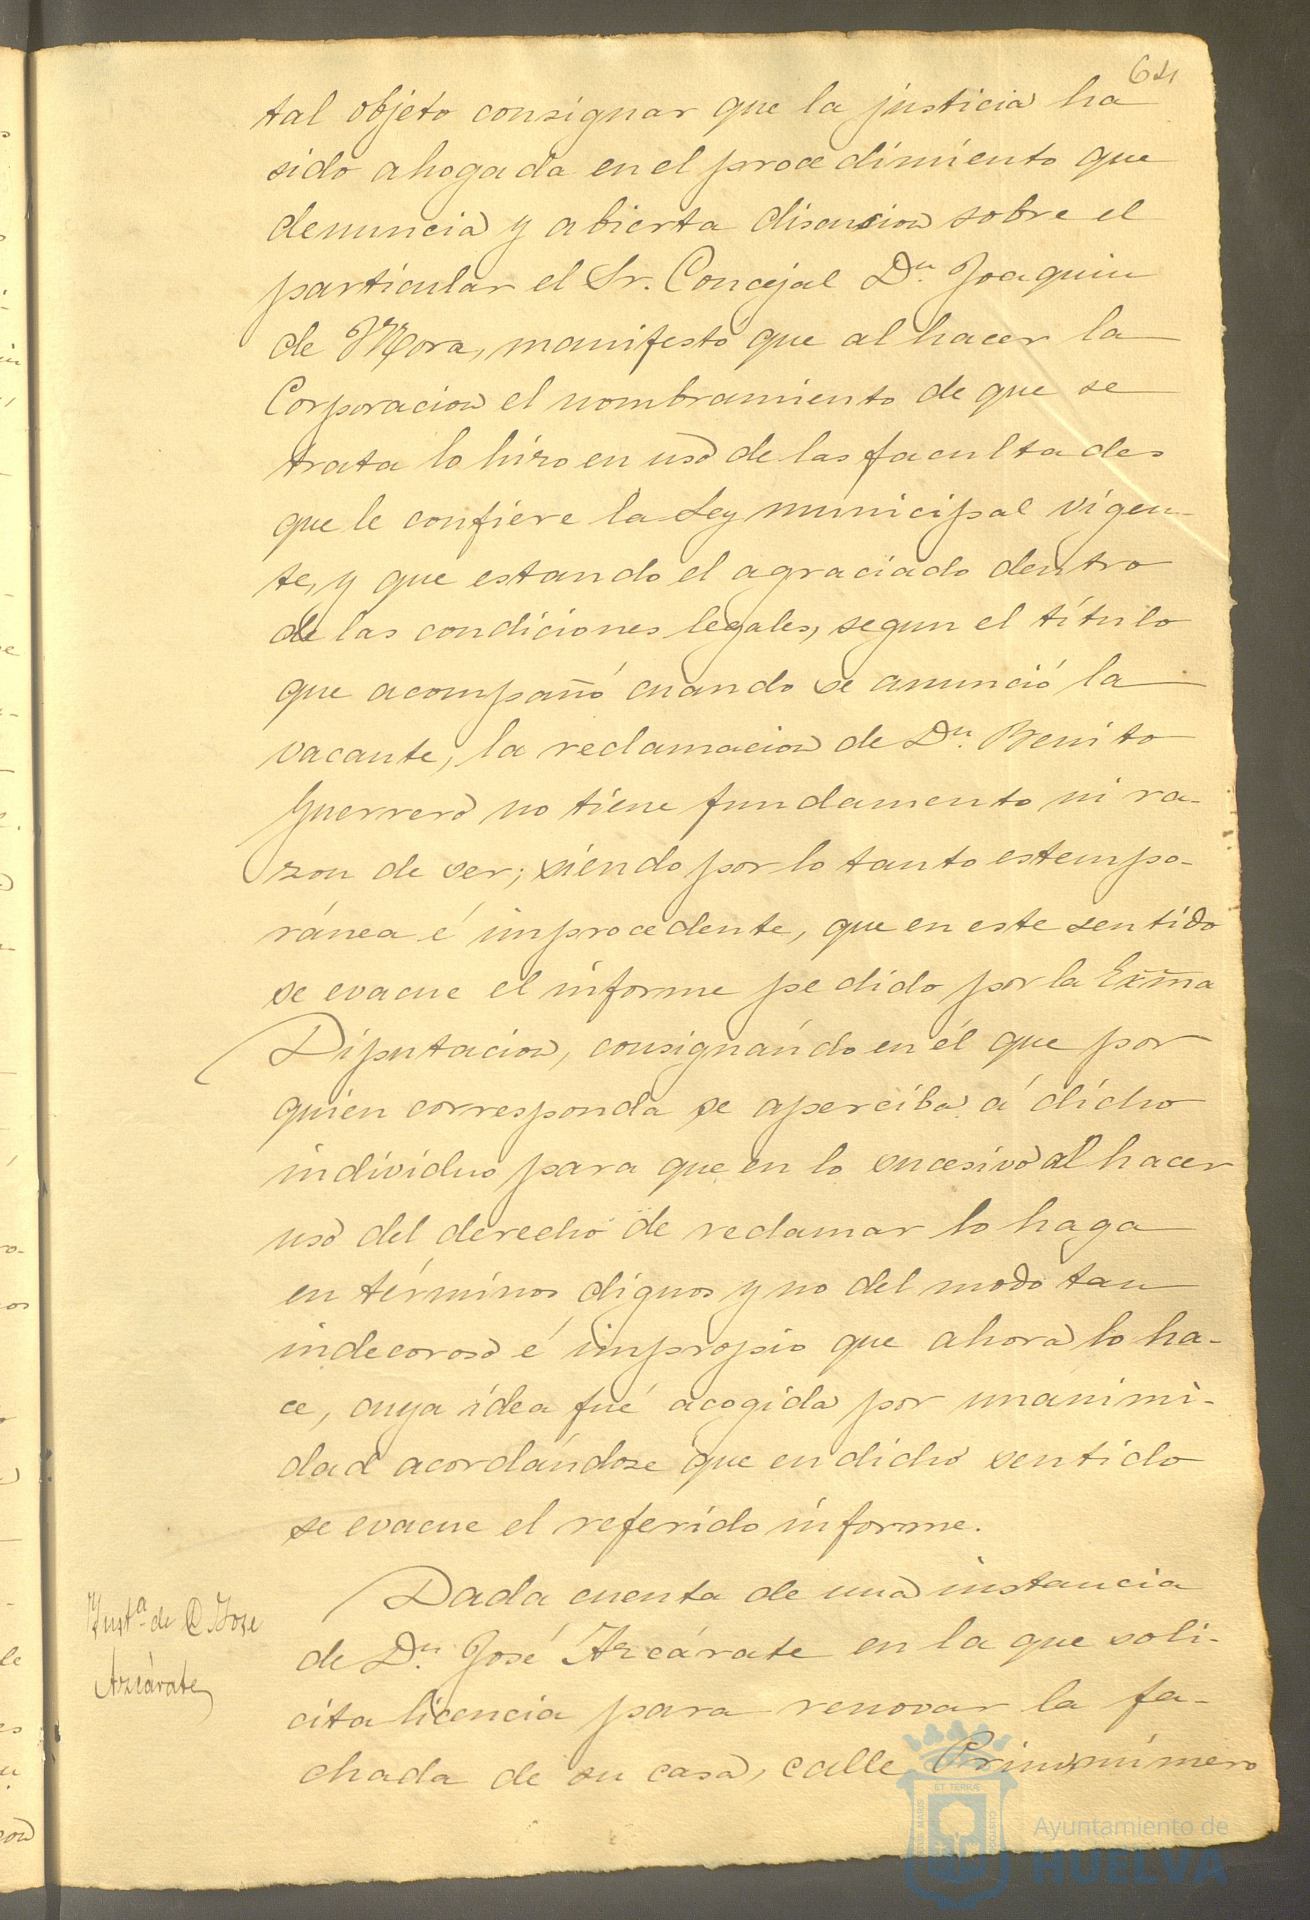 64
tal objeto consignar que la justicia ha
sido ahogada en el procedimiento que
denuncia y abierta discusion sobre el
particular el Sr. Concejal Dn. Joaquin
de Mora, manifestó que al hacer la
Corporacion el nombramiento de que se
trata lo hizo en uso de las facultades
que le confiere la Ley municipal vigen-
te, y que estando el agraciado dentro
de las condiciones legales, segun el título
que acompañó cuando se anunció la
vacante, la reclamacion de Dn. Benito
Guerrero no tiene fundamento ni ra-
zon de ser; siendo por lo tanto estempo-
ránea é improcedente, que en este sentido
se evacue el informe pedido por la Exma
Diputacion, consignándo en él que por
quien corresponda se aperciba á dicho
individuo para que en lo sucesivo al hacer
uso del derecho de reclamar lo haga
en términos dignos y no del modo tan
indecoroso é impropio que ahora lo ha-
ce, cuya idea fué acogida por unanimi-
dad acordándose que en dicho sentido
se evacue el referido informe.
Insta. de D. Jose
Azcárate
Dada cuenta de una instancia
de Dn. José Azcárate en la que soli-
cita licencia para renovar la fa-
chada de su casa, calle Prim, número
ET TERRÆ
Ayuntamiento de
HUELVA